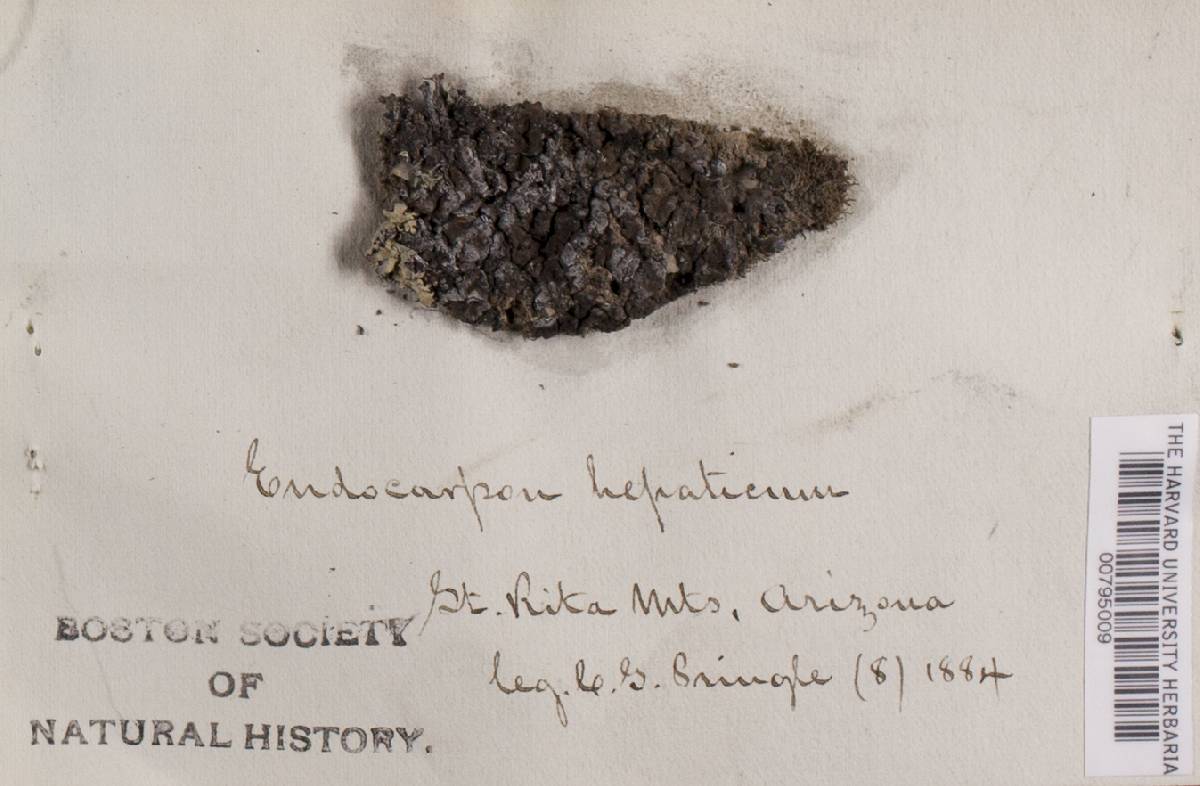 Endocarpon hepaticum
St. Rita Mts, Arizona
leg. C. G. Pringle (8) 1884
BOSTON SOCIETY
OF
NATURAL HISTORY.
THE HARVARD UNIVERSITY HERBARIA
00795009